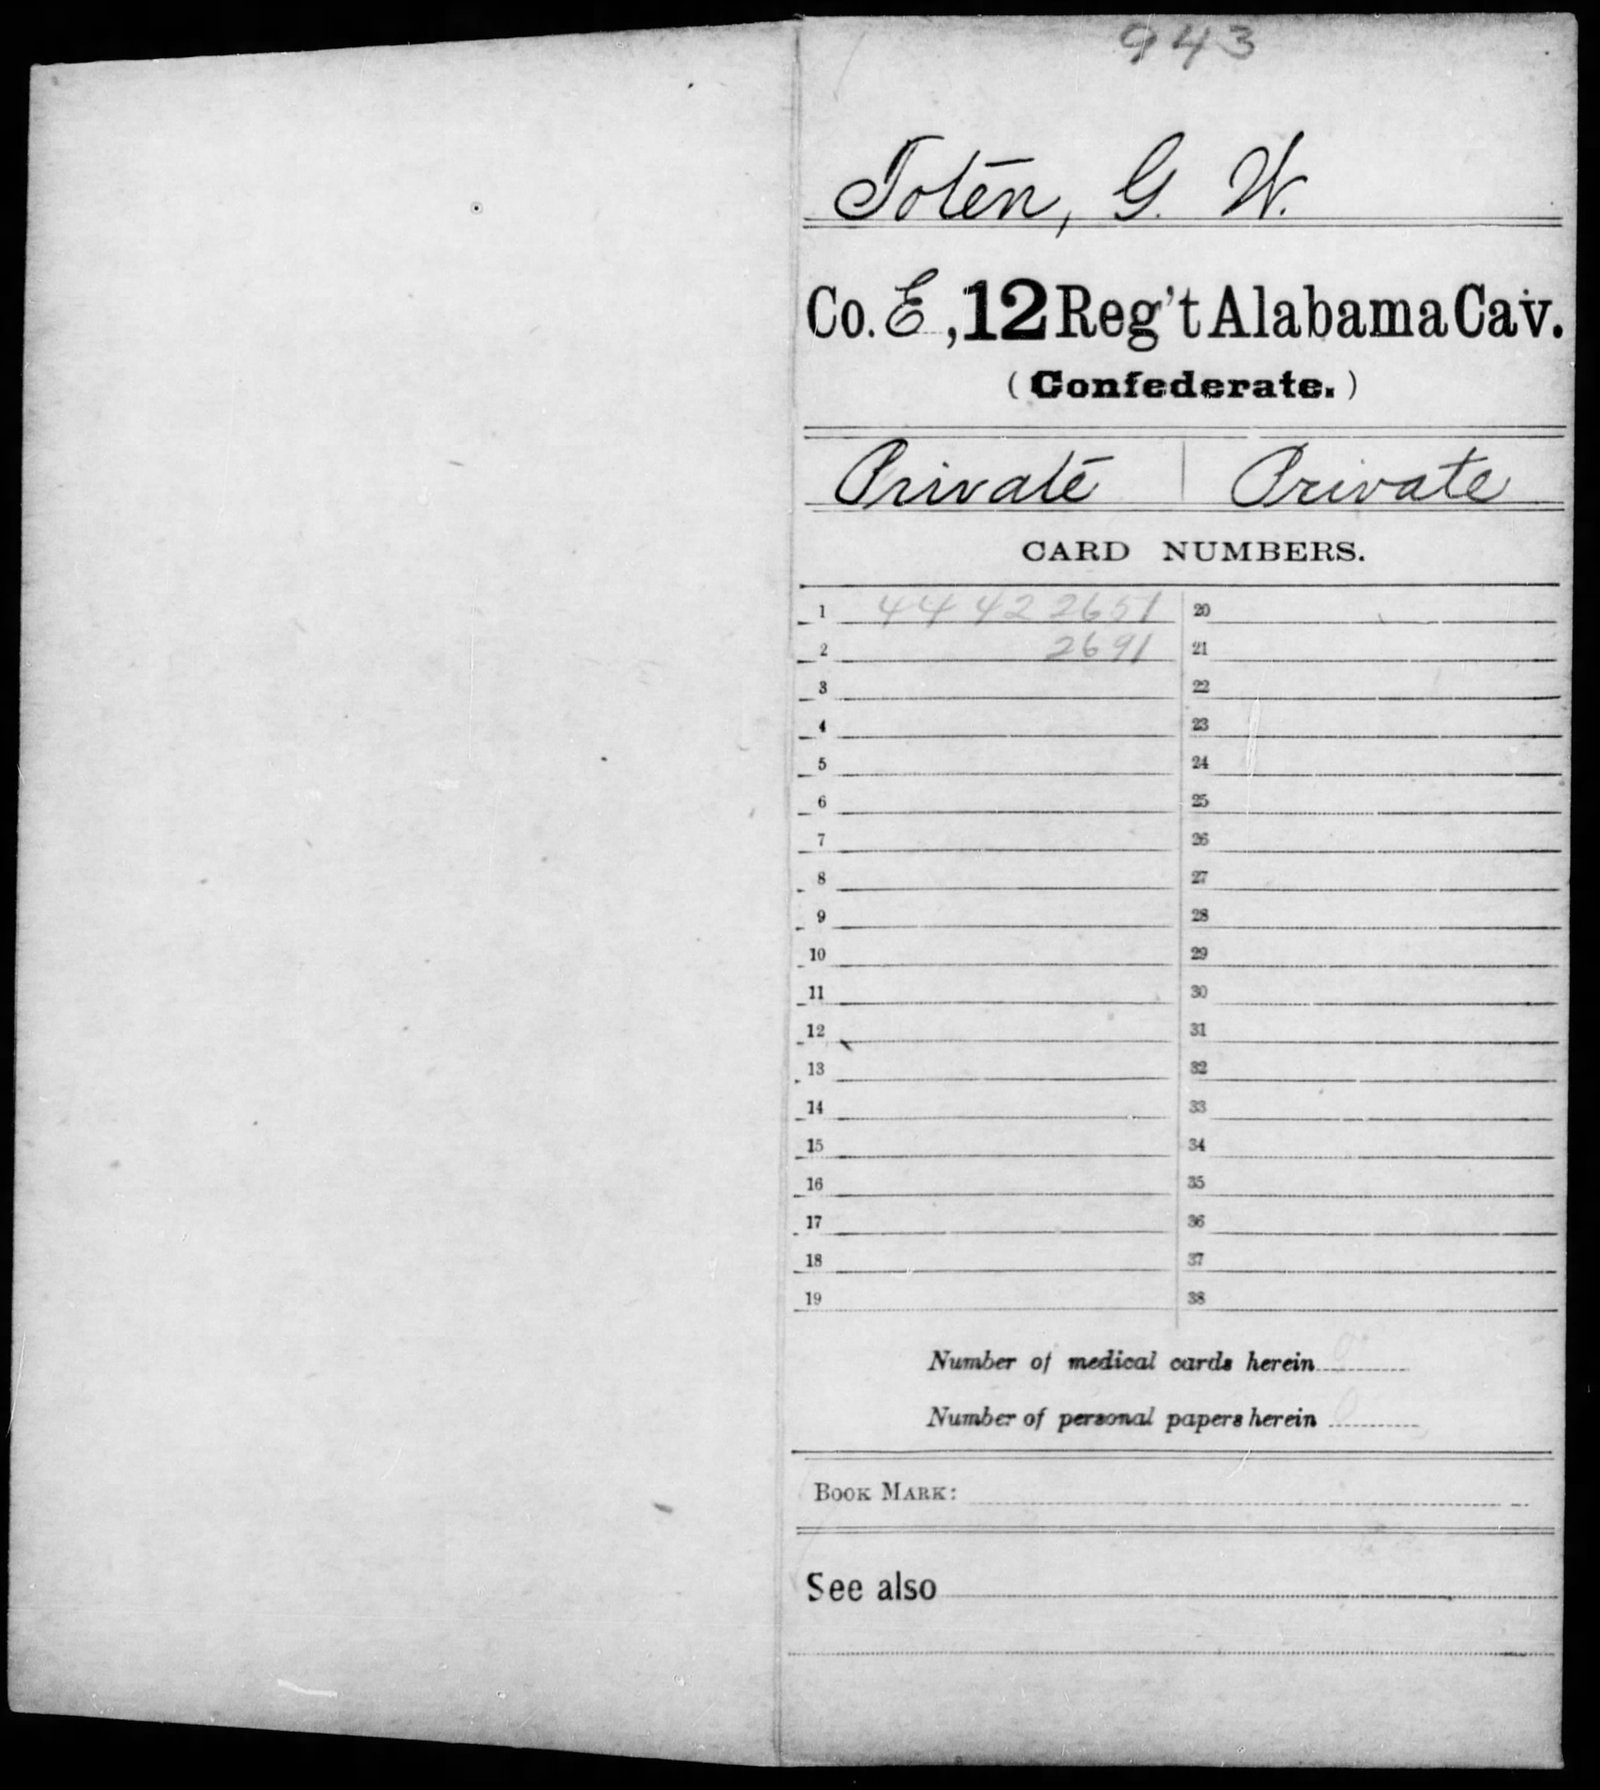 943
Toten, G. W.
Co. E, 12 Reg't Alabama Cav.
(Confederate.)
Private | Private
CARD NUMBERS.
1 44 42 2651 20
2 2691 21
3 22
4 23
5 24
6 25
7 26
8 27
9 28
10 29
11 30
12 31
13 32
14 33
15 34
16 35
17 36
18 37
19 38
Number of medical cards herein 0
Number of personal papers herein 0
BOOK MARK:
See also